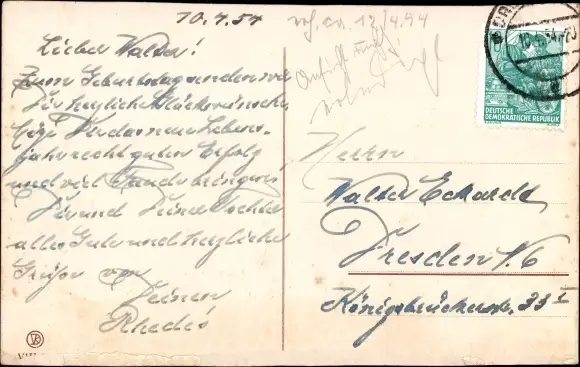 10.4.54
Lieber Walter!
Zum Geburtstag senden wir
Dir herzliche Glückwünsche
Möge Dir das neue Lebens-
jahr recht guten Erfolg
und viel Freude bringen.
Dir und Deine Tochter
alles Gute und herzliche
Grüße von
Deinen
12/4.54
DEUTSCHE
DEMOKRATISCHE REPUBLIK
Herrn
Walter Eckardt
Dresden N6
Königsbrückerstr. 33 I